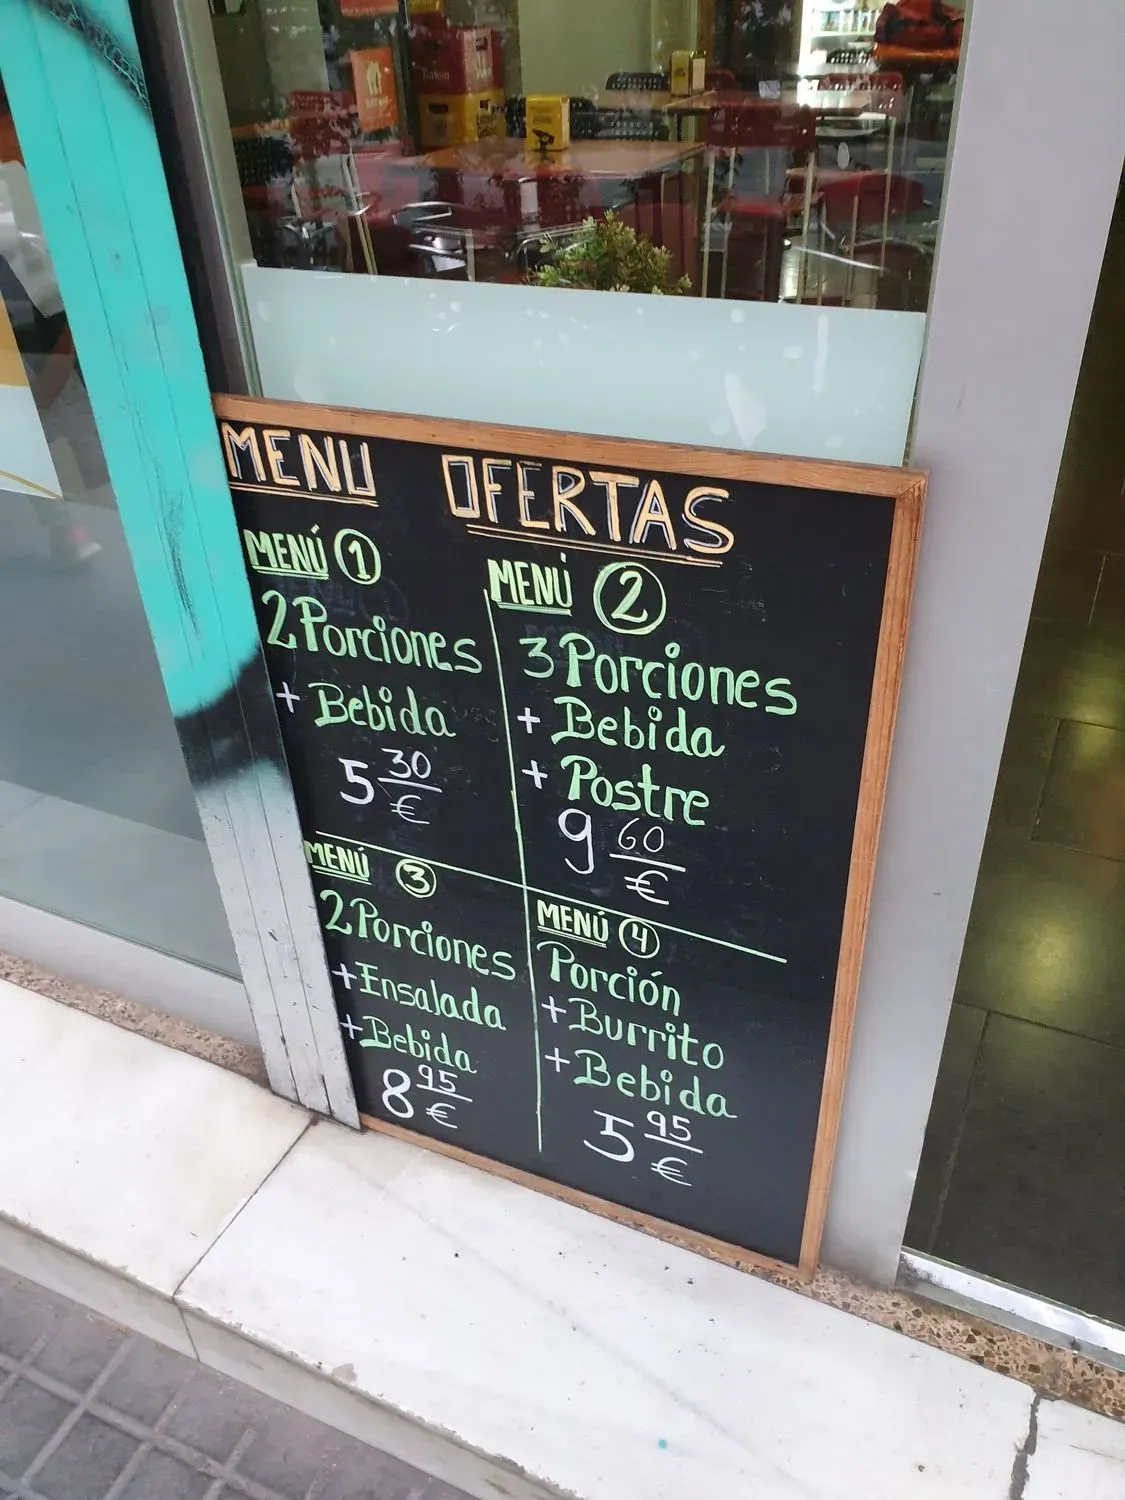 MENU OFERTAS
MENÚ 1
2 Porciones
+ Bebida
5 30
€
MENÚ 2
3 Porciones
+ Bebida
+ Postre
9 60
€
MENÚ 3
2 Porciones
+ Ensalada
+ Bebida
8 95
€
MENÚ 4
Porción
+ Burrito
+ Bebida
5 95
€